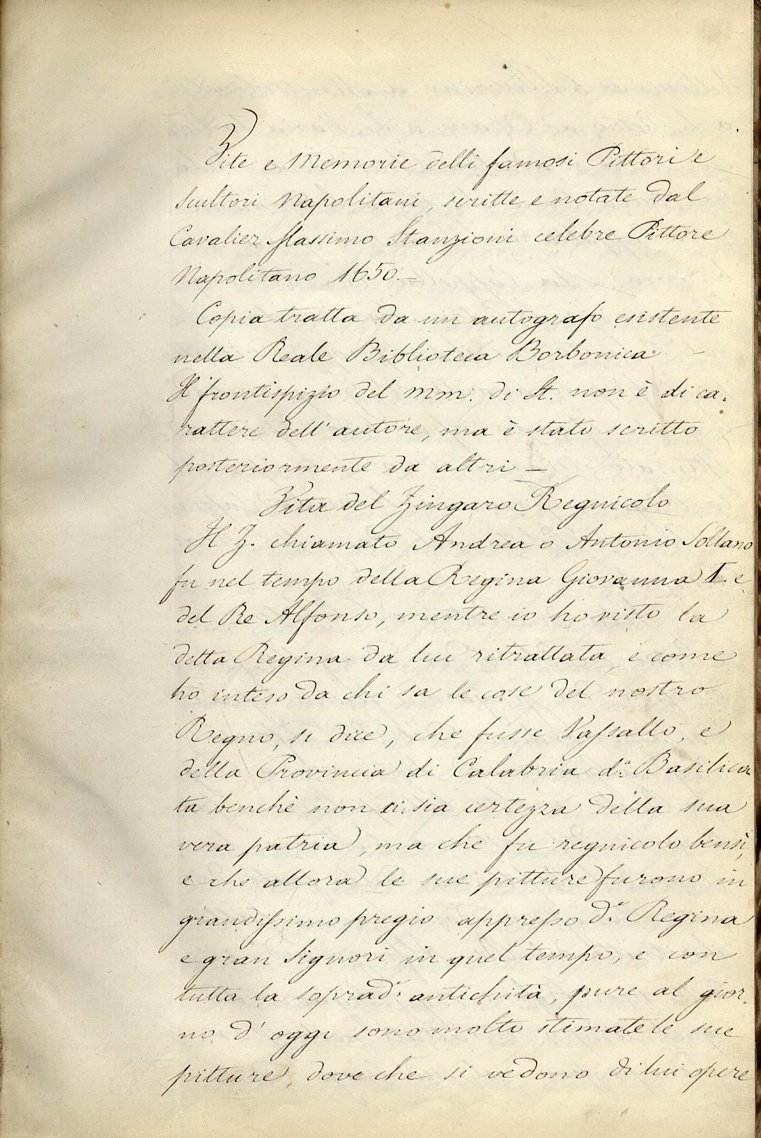 Vite e Memorie delli famosi Pittori e
Scultori Napolitani, scritte e notate dal
Cavalier Massimo Stanzioni celebre Pittore
Napolitano 1650 –
Copia tratta da un autografo esistente
nella Reale Biblioteca Borbonica –
Il frontispizio del mm. di St. non è di ca-
rattere dell' autore, ma è stato scritto
posteriormente da altri –
Vita del Zingaro Regnicolo
Il Z. chiamato Andrea o Antonio Sollano
fu nel tempo della Regina Giovanna I. e
del Re Alfonso, mentre io ho visto la
detta Regina da lui ritrattata, e come
ho inteso da chi sa le cose del nostro
Regno, si dice, che fusse Vassallo, e
della Provincia di Calabria d.ª Basilica
ta benchè non ci sia certezza della sua
vera patria, ma che fu regnicolo bensì,
e che allora le sue pitture furono in
grandissimo pregio appresso d.ª Regina
e gran Signori in quel tempo, e con
tutta la soprad.ª antichità, pure al gior-
no d' oggi sono molto stimate le sue
pitture, dove che si vedono di lui opere